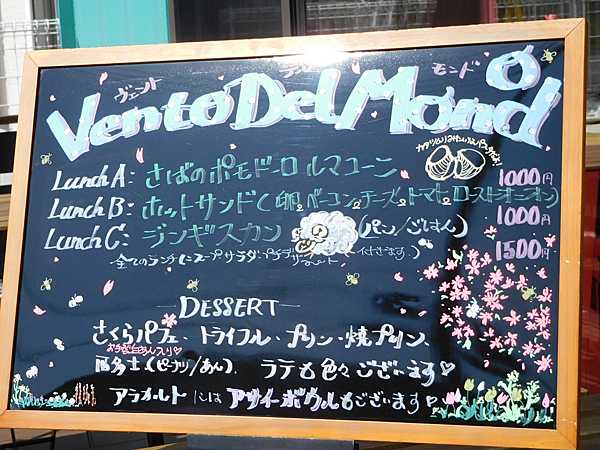 ヴェント デル モンド
Vento Del Mondo
カタツムリみたいなパスタです!
Lunch A: さばのポモドーロ ルマコーニ 1000円
Lunch B: ホットサンド(卵。ベーコン。チーズ。トマト。ローストオニオン) 1000円
Lunch C: ジンギスカン (パン/ごはん) 1500円
全てのランチにスープサラダ・プチデザート付きます。)
DESSERT
さくらパフェ・トライフル・プリン・焼プリン、
お手製白あん入り♡
(ピーナツ/あん)、ラテも色々ございます♡
アラカルトにはアサイーボウルもございます♡